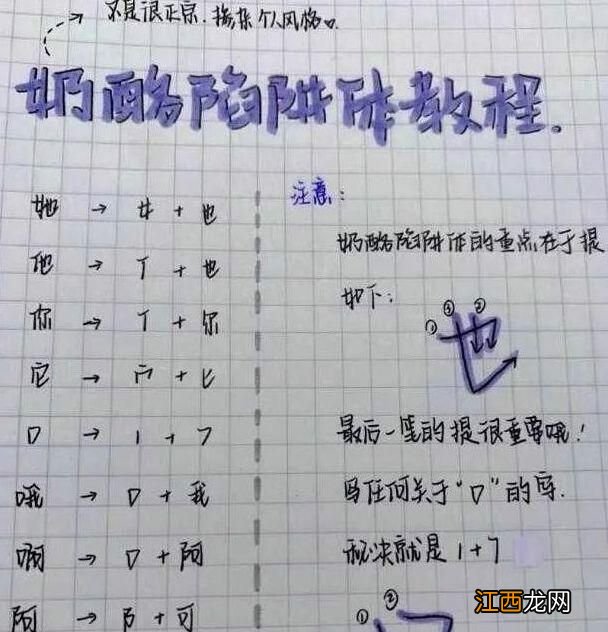 不是很正宗.掺杂个人风格。
奶酪陷阱体教程.
她 → 女 + 也
他 → 亻 + 也
你 → 亻 + 尔
它 → 宀 + 匕
口 → 1 + 7
哦 → 口 + 我
啊 → 口 + 阿
阿 → 阝 + 可
注意:
奶酪陷阱体的重点在于提
如下:
① ③ ②
也
最后一笔的提很重要哦!
写任何关于“口”的字.
秘诀就是 1 + 7
① ②
江西龙网